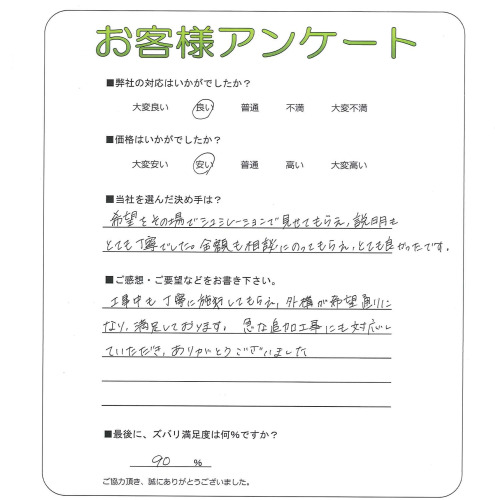 お客様アンケート
■弊社の対応はいかがでしたか？
大変良い 良い 普通 不満 大変不満
■価格はいかがでしたか？
大変安い 安い 普通 高い 大変高い
■当社を選んだ決め手は？
希望をその場でシュミレーションで見せてもらえ、説明も
とても丁寧でした。金額も相談にのってもらえ、とても良かったです。
■ご感想・ご要望などをお書き下さい。
工事中も丁寧に施施してもらえ、外構が希望通りに
なり、満足しております。急な追加工事にも対応し
ていただき、ありがとうございました
■最後に、ズバリ満足度は何%ですか？
90 %
ご協力頂き、誠にありがとうございました。